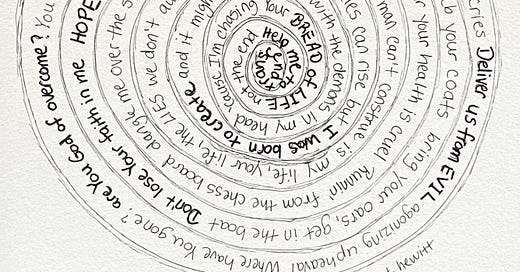 cries Deliver us from EVIL agonizing upheaval Where have You gone? are You God of overcome? You
your coats bring your oars, get in the boat Don't lose Your faith in me HOPE
your health is cruel Runnin' from the chess board dangle me over the
man can't construe is my life, your life, the LIES we don't
can rise but I was born to create and it
with the demons in my head 'cause I'm chasing Your BREAD of LIFE not the end
Help me to
hewitt